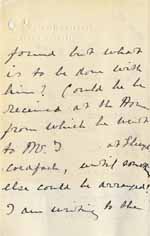 found but what
is to be done with
him? Could he be
received at the Home
from which he went
to Mr. J at
until some
else could be arranged?
I am writing to the